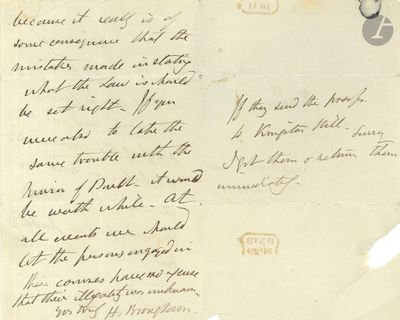 because it really is of
some consequence that the
mistakes made in stating
what the Law is should
be set right. If you
were also to take the
same trouble with the
of it would
be worth while. At
all events we should
let the persons engaged in
these courses have no excuse
that their illegality was unknown
H. Brougham
If they send the proofs
to Kingston Hill - Surry
I get them & return them
immediately.